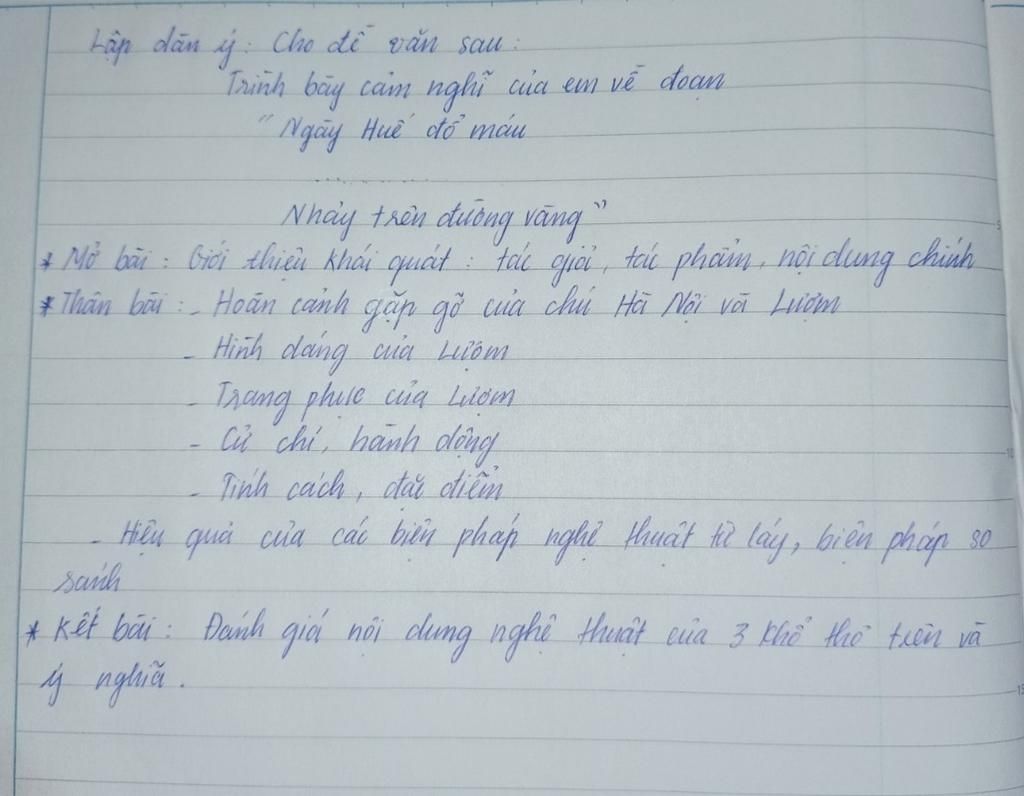 Lập dàn ý: Cho đề văn sau:
Trình bày cảm nghĩ của em về đoạn
"Ngày Huế đổ máu
...........
Nhảy trên đường vàng"
* Mở bài: Giới thiệu khái quát: tác giả, tác phẩm, nội dung chính
* Thân bài: - Hoàn cảnh gặp gỡ của chú Hà Nội và Lượm
- Hình dáng của Lượm
- Trang phục của Lượm
- Cử chỉ, hành động
- Tính cách, đặc điểm
- Hiệu quả của các biện pháp nghệ thuật từ láy, biện pháp so
sánh
* Kết bài: Đánh giá nội dung nghệ thuật của 3 khổ thơ trên và
ý nghĩa.
5
10
15